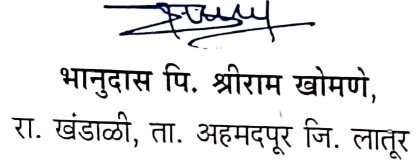 भानुदास पि. श्रीराम खोमणे,
रा. खंडाळी, ता. अहमदपूर जि. लातूर